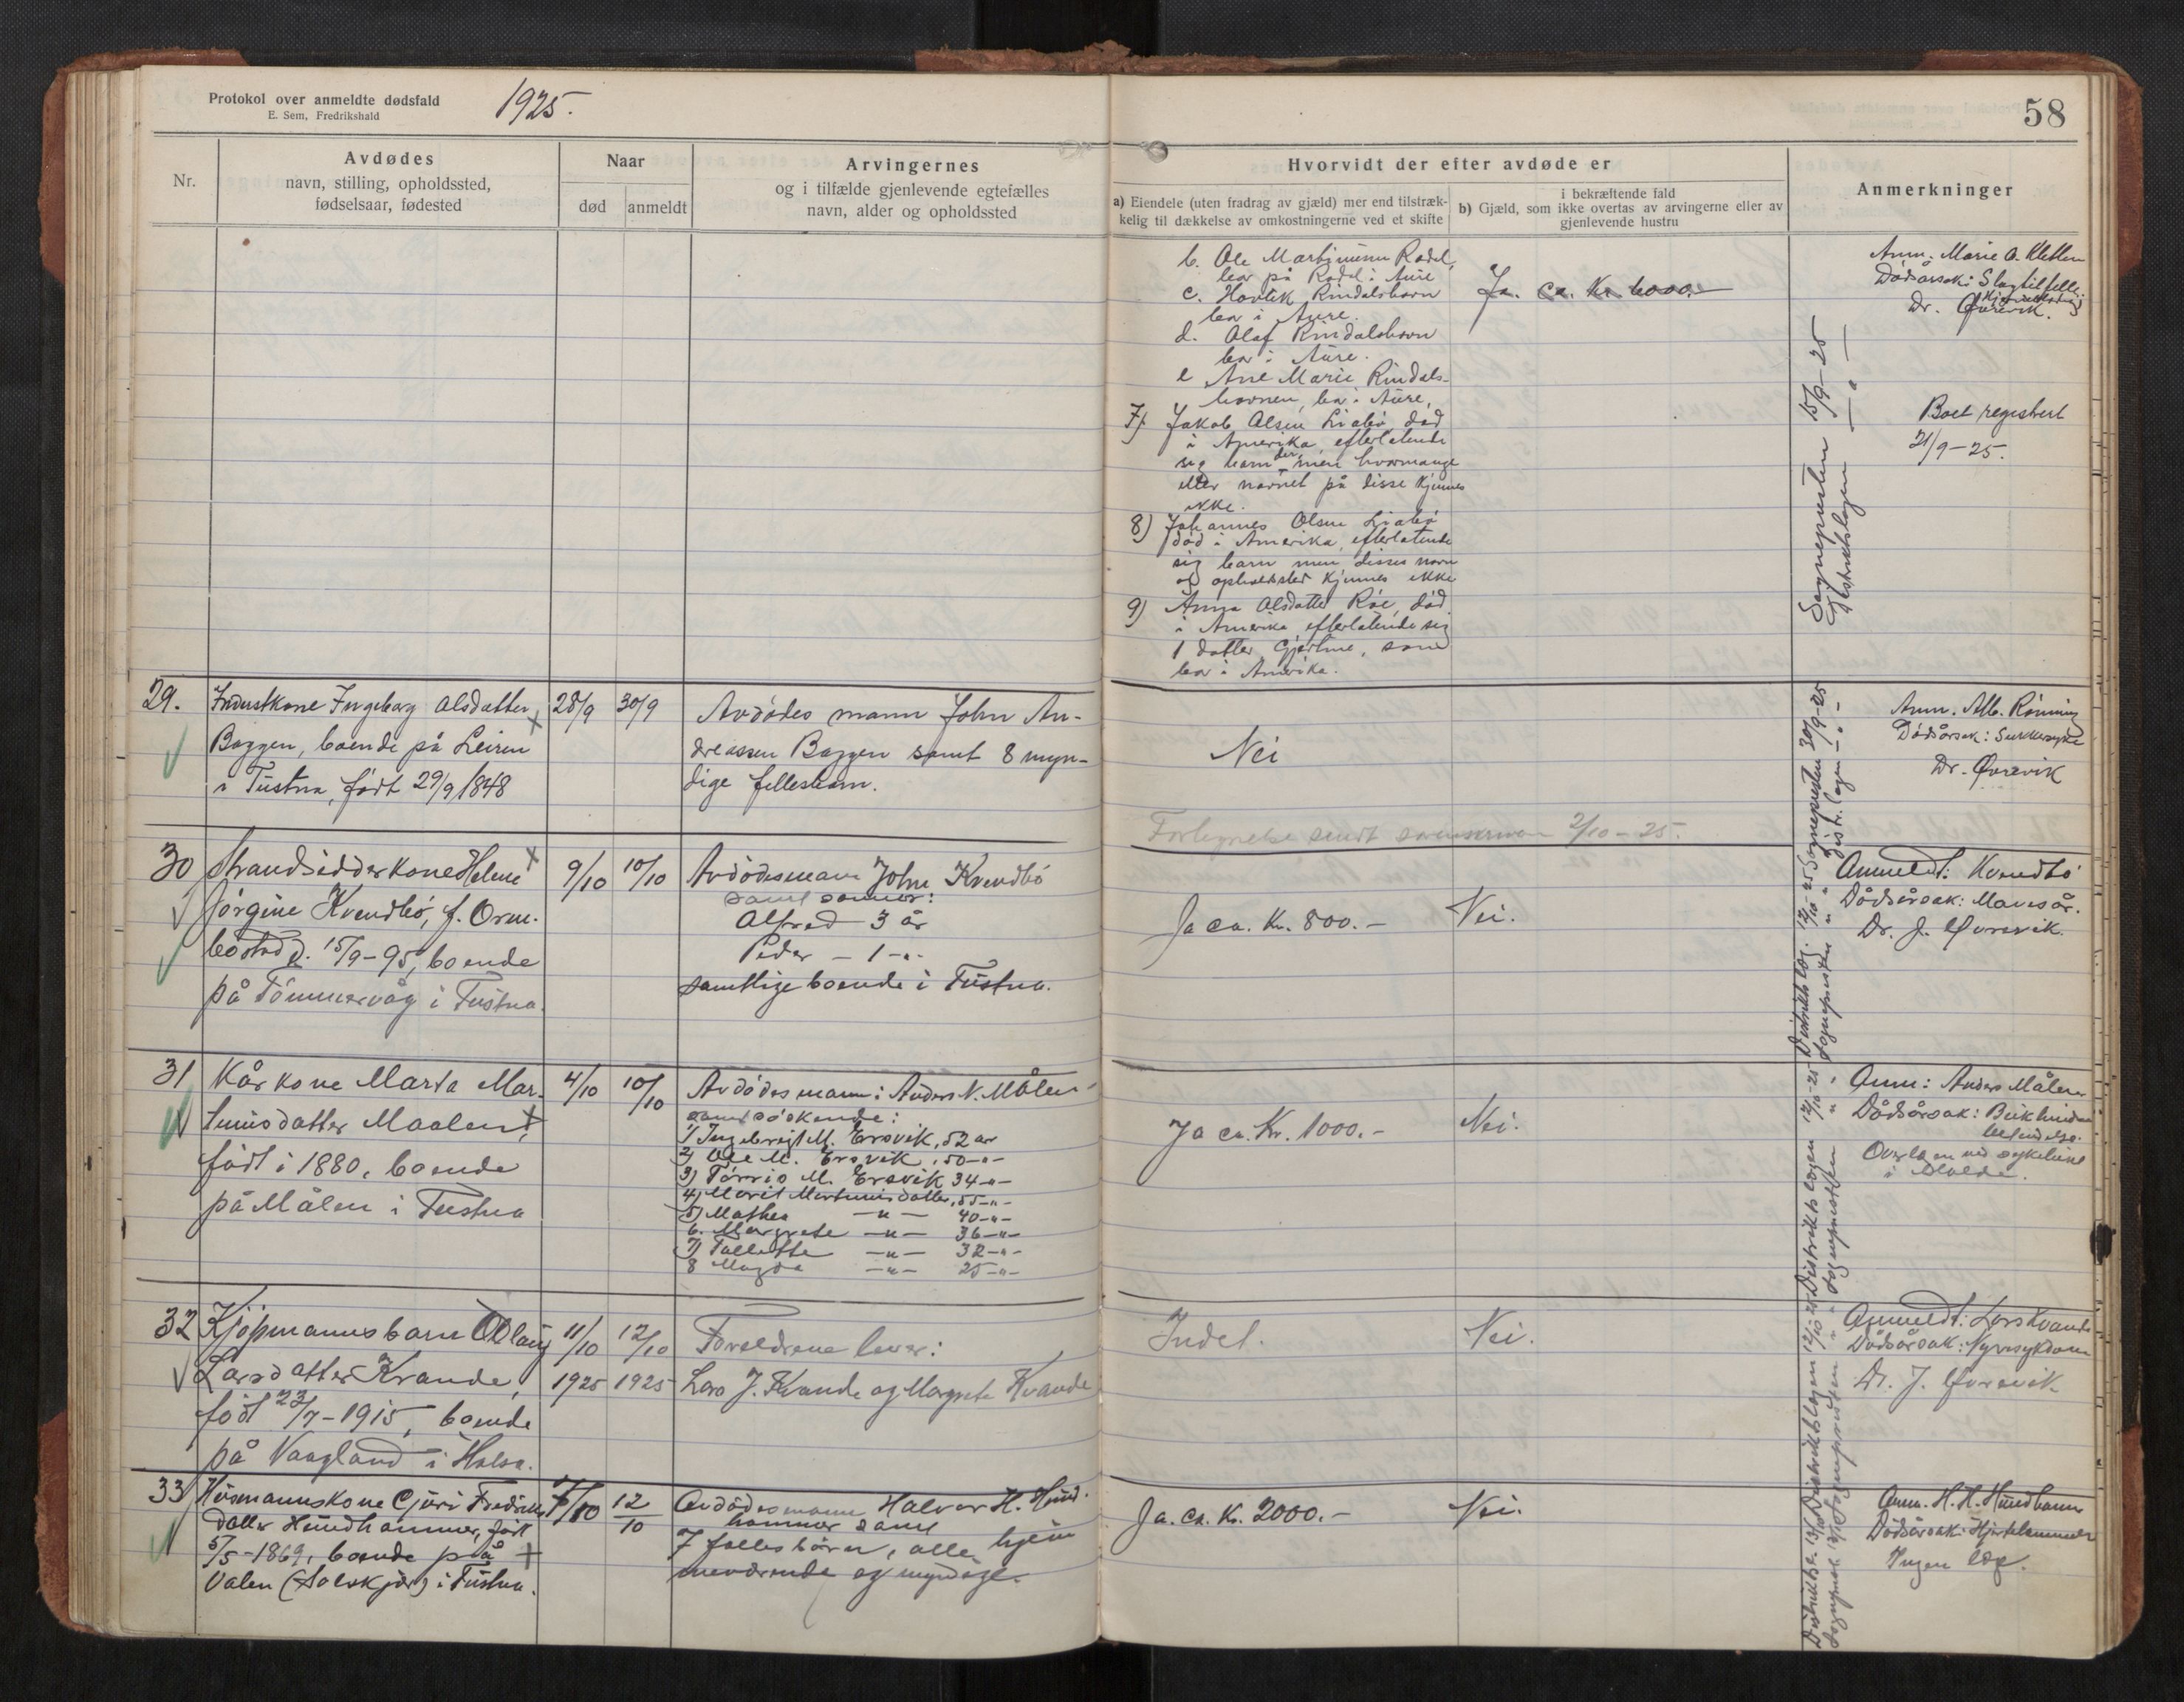 Protokol over anmeldte dødsfald
E. Sem, Fredrikshald
1925.
58
Nr.
Avdødes
navn, stilling, opholdssted,
fødselsaar, fødested
Naar
død
anmeldt
Arvingernes
og i tilfælde gjenlevende egtefælles
navn, alder og opholdssted
Hvorvidt der efter avdøde er
a) Eiendele (uten fradrag av gjæld) mer end tilstræk-
kelig til dækkelse av omkostningerne ved et skifte
i bekræftende fald
b) Gjæld, som ikke overtas av arvingerne eller av
gjenlevende hustru
Anmerkninger
b. Ole Martinusen Rodal,
bor på Rodal i Aure
c. Hovlik Rindalshavn
bor i Aure.
d. Olaf Rindalshavn
bor i Aure.
e Ane Marie Rindals-
havnen, bor i Aure,
7) Jakob Olsen Liabø, død
i Amerika, efterlatende
sig barn men hvormange
eller navnet på disse kjennes
ikke.
8) Johannes Olsen Liabø
død i Amerika, efterlatende
sig barn men disses navn
og opholdssted kjennes ikke
9) Anna Olsdatter Röe, död
i Amerika efterlatende sig
1 datter, Gjertine, som
bor i Amerika.
Ja. ca. Kr. 6000.-
Anm. Marie O. Kletten
Dødsårsak: Slagtilfelle
Dr. Øvrevik.
Boet registrert
21/9-25.
Sognepresten 15/9-25
Distriktslægen
29.
Ingeborg Olsdatter
Baggen, boende på Leiren
i Tustna, født 29/9 1848
28/9
30/9
Avdødes mann John An-
dreassen Baggen samt 8 myn-
dige fellesbarn.
Nei
Anm. Alb. Rönning
Dødsårsak: Sukkersyke
Dr. Øvrevik
Sognepresten 30/9-25
Distr. lægen
sendt sorenskriveren 2/10-25.
30
Strandsidderkone Helene
Jörgine Kvendbö, f. Orm-
bostad d. 15/9-95, boende
på Tömmervåg i Tustna.
9/10
10/10
Avdödes mann John Kvendbö
samt sönner:
Alfred 3 år
Peder - 1 -"-
samtlige boende i Tustna.
Ja ca. Kr. 800.-
Nei.
Anmeldt: Kvendbö
Dödsårsak:
Dr. J. Øvrevik.
31
Kårkone Marta Mar-
tinusdatter Maalen,
född i 1880, boende
på Målen i Tustna
4/10
10/10
Avdödes mann: Anders N. Målen
samt söskende:
1) Ingebrigt M. Ersvik, 52 år
2) Ole M. Ersvik, 50 -"-
3) Törris M. Ersvik 34 -"-
4) Marit Martinusdatter, 55 -"-
5) Mathea -"- 40 -"-
6. Margrete -"- 36 -"-
7) -"- 32 -"-
8 Magda -"- 25 -"-
Ja ca. Kr. 1000.-
Nei.
Anm: Anders Målen
Dödsårsak:
Overlægen ved sykehuset
i Molde.
32
Kjöpmannsbarn Olaug
Larsdatter Kvande,
född 23/7-1915, boende
på Vaagland i Halsa.
11/10
1925
12/10
1925
Foreldrene lever:
Lars J. Kvande og Margrete Kvande
Intet.
Nei.
Anmeldt: Lars Kvande
Dödsårsak: Nyresykdom
Dr. J. Øvrevik
33
Husmannskone Gjuri Fredriks-
datter Hundhammer, född
5/5-1869, boende på
Valen (Solskjær) i Tustna.
12/10
Avdödes mann Halvor H. Hund-
hammer samt
7 felles börn, alle hjem-
meværende og myndige.
Ja. ca. Kr. 2000.-
Nei.
Anm. H. H. Hundhammer
Dödsårsak: Hjertelammelse
Ingen læge.